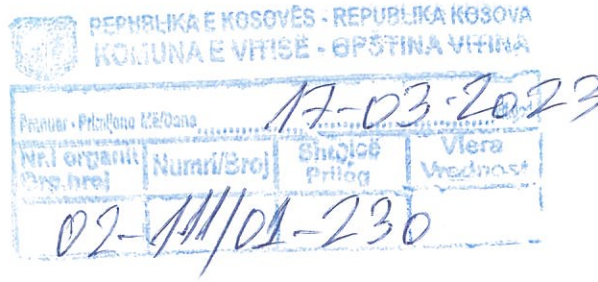 REPUBLIKA E KOSOVËS - REPUBLIKA KOSOVA
KOMUNA E VITISË - OPŠTINA VITINA
Pranuar - Primljeno Më/Dana 17-03-2023
Nr.i organit Numri/Broj Shtojcë Vlera
Org.broj Prilog Vrednost
02-111/01-230